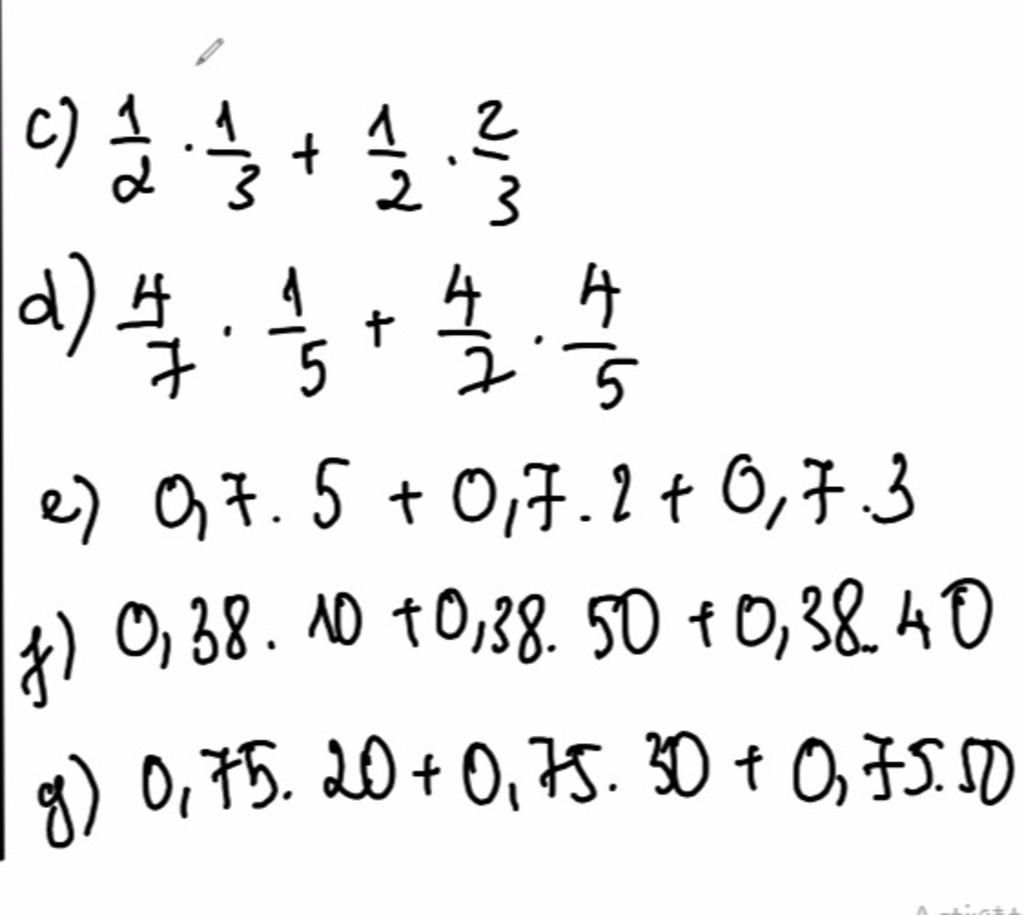 c) 1/2 . 1/3 + 1/2 . 2/3
d) 4/7 . 1/5 + 4/7 . 4/5
e) 0,7 . 5 + 0,7 . 2 + 0,7 . 3
f) 0,38 . 10 + 0,38 . 50 + 0,38 . 40
g) 0,75 . 20 + 0,75 . 30 + 0,75 . 50